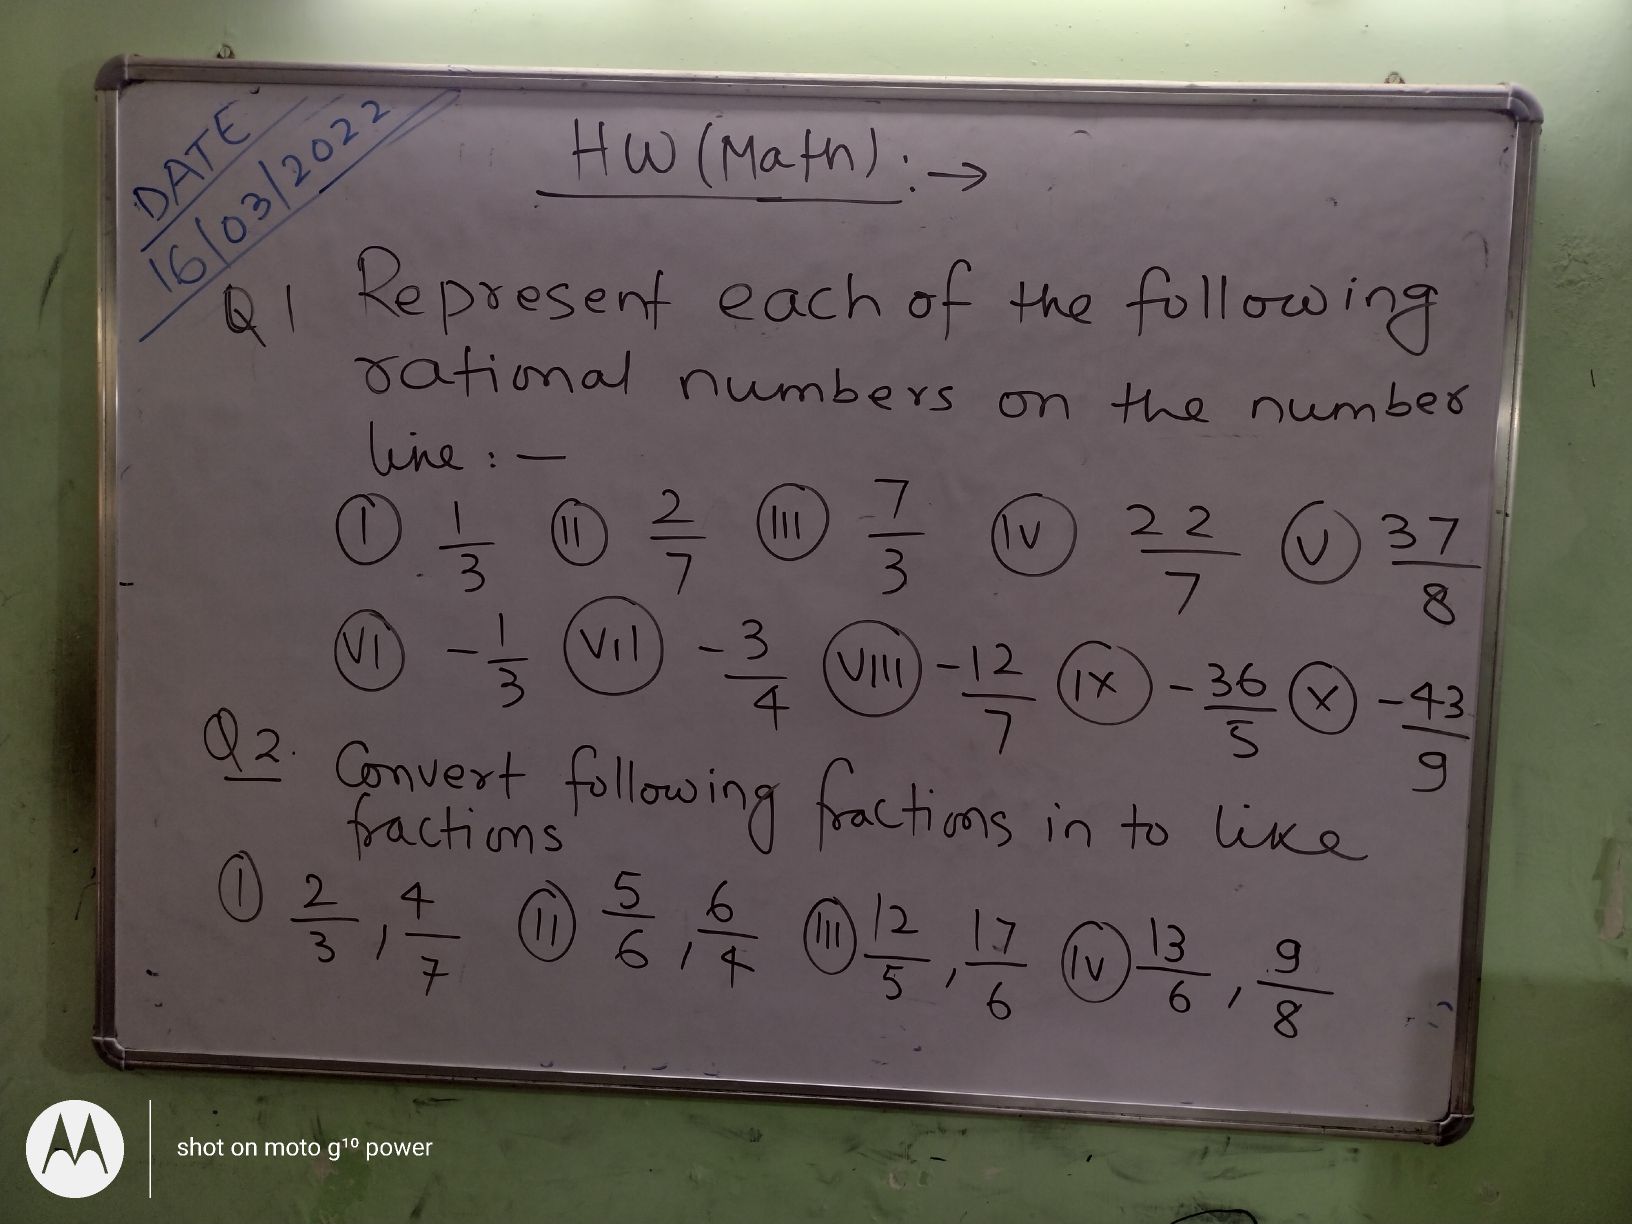 DATE
16/03/2022
HW (Math) : →
Q1 Represent each of the following
rational numbers on the number
line : —
(I) 1/3 (II) 2/7 (III) 7/3 (IV) 22/7 (V) 37/8
(VI) -1/3 (VII) -3/4 (VIII) -12/7 (IX) -36/5 (X) -43/9
Q2. Convert following fractions in to like
fractions
(I) 2/3, 4/7 (II) 5/6, 6/4 (III) 12/5, 17/6 (IV) 13/6, 9/8
shot on moto g¹⁰ power